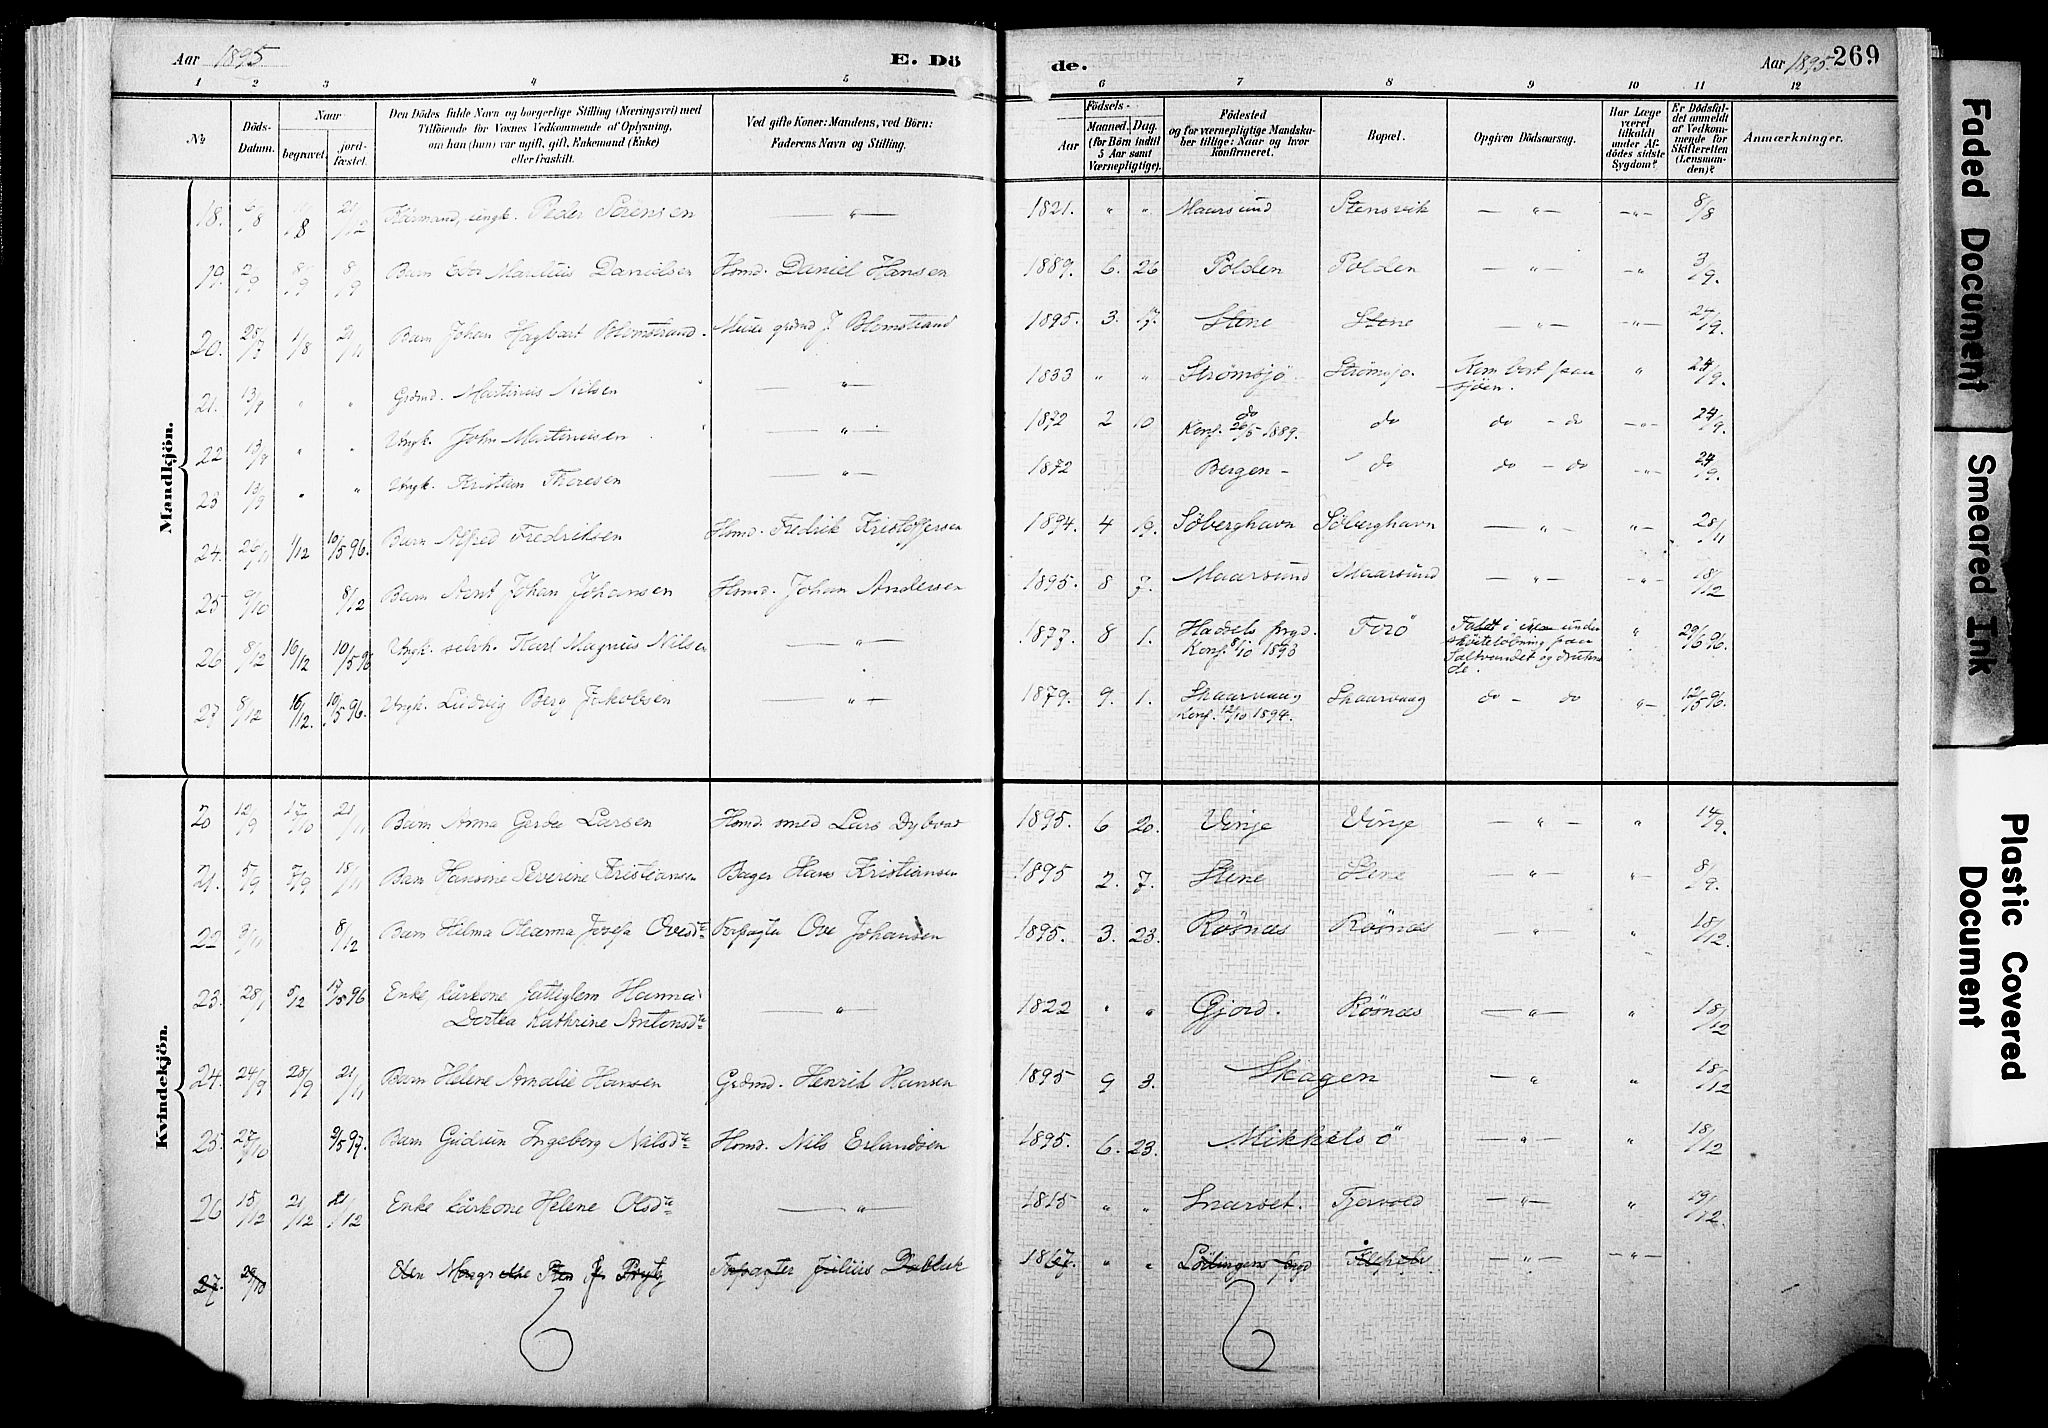 Aar 1895
E. Dö
de.
Aar 1895. 269
1 2 3 4 5 6 7 8 9 10 11 12
No
Döds-Datum.
Naar
begravet.
jord-fæstet.
Den Dödes fulde Navn og borgerlige Stilling (Næringsvei) med
Tilföiende for Voxnes Vedkommende af Oplysning,
om han (hun) var ugift, gift, Enkemand (Enke)
eller fraskilt.
Ved gifte Koner: Mandens, ved Börn:
Faderens Navn og Stilling.
Födsels-
Aar
Maaned. Dag.
(for Börn indtil
5 Aar samt
Værnepligtige).
Födested
og for værnepligtige Mandska-
ber tillige: Naar og hvor
Konfirmeret.
Bopæl.
Opgiven Dödsaarsag.
Har Læge
været
tilkaldt
under Af-
dödes sidste
Sygdom?
Er Dödsfal-
det anmeldt
af Vedkom-
mende for
Skifteretten
(Lensman-
den)?
Anmærkninger.
Mandkjön.
18. /8 /8 21/12 Kårmand, ungk. Peder Sörensen — " — 1821. " " Maarsund Stensvik — " — — " — 8/8
19. 2/9 8/9 8/9 Barn Edvr Marelius Danielsen Hmd. Daniel Hansen 1889. 6. 26 Polden Polden — " — — " 3/9.
20. 25/7 1/8 21/11 Barn Johan Hagbart Blomstrand. Murer grdmd J. Blomstrand 1895. 3. 17. Stene Stene — " — — " — 24/9.
21. 13/9 " " Grdmd. Martinus Nilsen — " — 1833 " " Strömsjö Strömsjö. Kom bort paa
sjöen. " 24/9.
22 13/9 " " Ungk. John Martinusen — " — 1872 2 10 do
Konf. 26/5 1889. do do - do — " — 24/9.
23 13/9 " " Ungk. Kristian Thoresen — " — 1872 Bergen - do do - do — " — 24/9.
24. 26/11 1/12 10/5 96. Barn Alfred Fredriksen Hmd. Fredrik Kristoffersen 1894. 4 19. Söberghavn Söberghavn — " — " — 28/11
25 9/10 8/12 Barn Arnt Johan Johansen Hmd. Johan Andersen 1895. 8 7. Maarsund Maarsund — " — — " — 18/12
26 8/12 16/12 10/5 96 Ungk. selvh. Karl Magnus Nilsen — " — 1877. 8 1. Hadsels prgd.
Konf. 8/10 1893 Forö Faldt i isen under
sköiteløbning paa
Saltvandet og drukne-
de. " 29/6 96.
27 8/12 16/12. 10/5 96. Ungk. Ludvig Berg Jakobsen — " — 1879. 9. 1. Skaarvaag
Konf. 12/10 1894. Skaarvaag do - do " — 12/5 96.
Kvindekjön.
20 12/9 17/10 21/11 Barn Anna Gerda Larsen Hmd. smed Lars Dybvad 1895. 6 20. Vinje Vinje — " — " 14/9.
21. 5/9 7/9 18/11 Barn Hansine Severine Kristiansen Bager Hans Kristiansen 1895 2. 7. Stene Stene — " — " — 8/9.
22 9/11 8/12 Barn Hilma Oleanna Josefa Ovesdtr Forpagter Ove Johansen 1895. 3. 23. Rösnæs Rösnæs — " — " 18/12.
23. 28/11 5/12 17/5 96 Enke kårkone fattiglem Hanna
Dortea Kathrine Antonsdtr — " — 1822 " " Gjord. Rösnæs — " — " 18/12
24. 24/9 28/9 21/11 Barn Helene Amalie Hansen Grdmd. Henrik Hansen 1895 9 3. Skagen — " " 18/12
25. 27/10 9/5 97. Barn Gudrun Ingeborg Nilsdtr Hmd. Nils Erlandsen 1895. 6. 23. Mikkelsö — " — " 18/12
26 15/12 21/12 21/12 Enke kårkone Helene Olsdtr — " — 1815 " " Snarset. Tjervold — " — " 19/12.
27. 29/10 Forpagter Julius 1867. " " Lödingens prgd — " — — " —
Faded Document
Smeared Ink
Plastic Covered
Document